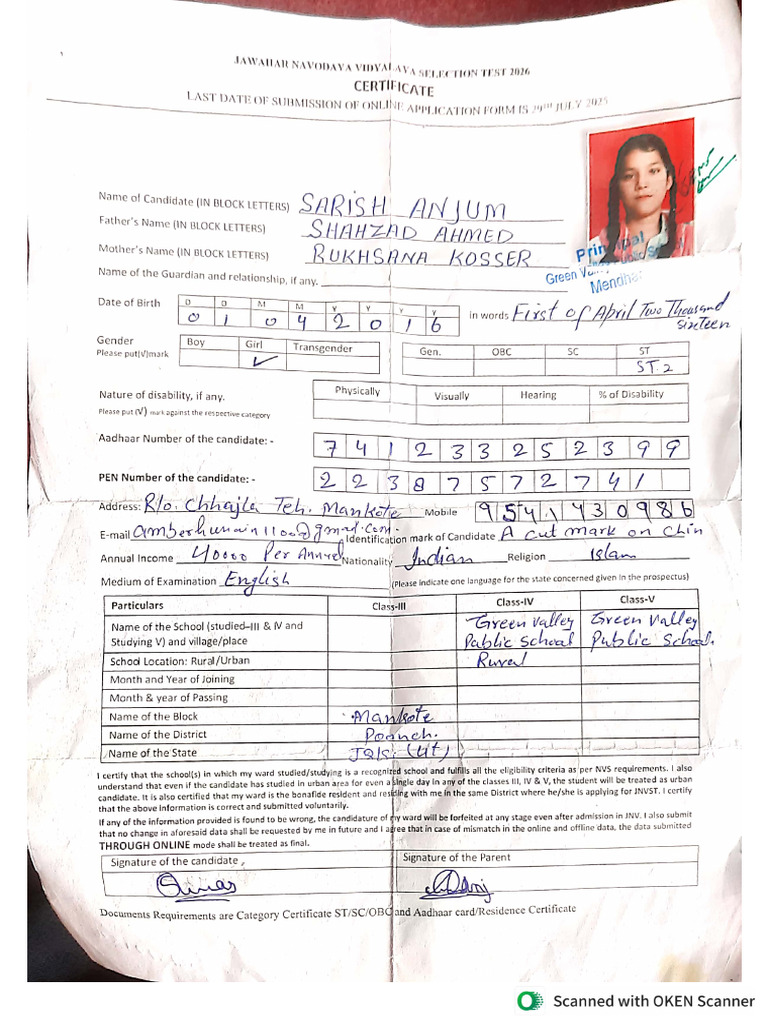 JAWAHAR NAVODAYA VIDYALAYA SELECTION TEST 2026
CERTIFICATE
LAST DATE OF SUBMISSION OF ONLINE APPLICATION FORM IS 29TH JULY 2025
Name of Candidate (IN BLOCK LETTERS) SARISH ANJUM
Father's Name (IN BLOCK LETTERS) SHAHZAD AHMED
Mother's Name (IN BLOCK LETTERS) RUKHSANA KOSSER
Principal
Green Valley Public School
Mendhar
Name of the Guardian and relationship, if any.
Date of Birth D D M M Y Y Y Y
0 1 0 4 2 0 1 6 in words First of April Two Thousand sixteen
Gender Boy Girl Transgender Gen. OBC SC ST
Please put(√)mark ✓ ST.2
Nature of disability, if any. Physically Visually Hearing % of Disability
Please put (√) mark against the respective category
Aadhaar Number of the candidate: - 7 4 1 2 3 3 2 5 2 3 9 9
PEN Number of the candidate: - 2 2 3 8 7 5 7 2 7 4 1
Address: R/o. Chhajla Teh. Mankote Mobile 9541430986
E-mail Identification mark of Candidate A cut mark on Chin
Annual Income 40000 Per Annual Nationality Indian Religion Islam
Medium of Examination English (Please indicate one language for the state concerned given in the prospectus)
Particulars Class-III Class-IV Class-V
Name of the School (studied–III & IV and Studying V) and village/place Green Valley Public School Green Valley Public School.
School Location: Rural/Urban Rural
Month and Year of Joining
Month & year of Passing
Name of the Block Mankote
Name of the District Poonch.
Name of the State J&K. (UT)
I certify that the school(s) in which my ward studied/studying is a recognized school and fulfills all the eligibility criteria as per NVS requirements. I also
understand that even if the candidate has studied in urban area for even a single day in any of the classes III, IV & V, the student will be treated as urban
candidate. It is also certified that my ward is the bonafide resident and residing with me in the same District where he/she is applying for JNVST. I certify
that the above information is correct and submitted voluntarily.
If any of the information provided is found to be wrong, the candidature of my ward will be forfeited at any stage even after admission in JNV. I also submit
that no change in aforesaid data shall be requested by me in future and I agree that in case of mismatch in the online and offline data, the data submitted
THROUGH ONLINE mode shall be treated as final.
Signature of the candidate , Signature of the Parent
Documents Requirements are Category Certificate ST/SC/OBC and Aadhaar card/Residence Certificate
Scanned with OKEN Scanner